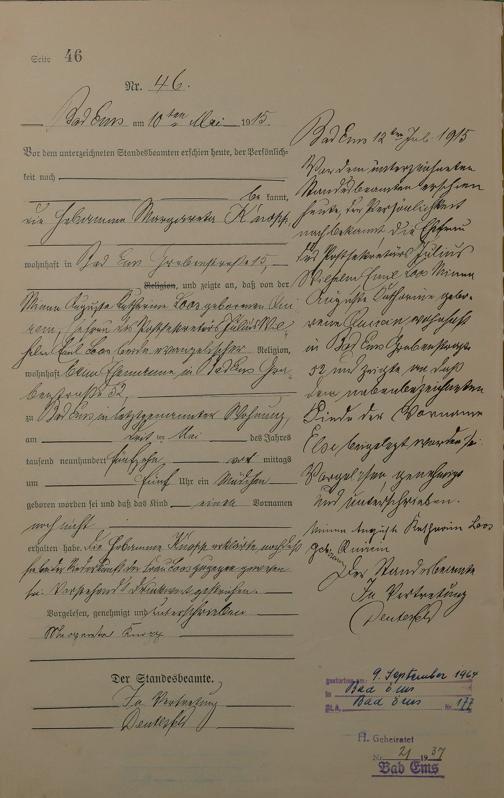 Seite 46
Nr. 46.
Bad Ems am 10ten Mai 1915.
Vor dem unterzeichneten Standesbeamten erschien heute, der Persönlich-
keit nach
be kannt,
die Hebamme Margareta Knopp
wohnhaft in Bad Ems Grabenstraße 15,
Religion, und zeigte an, daß von der
Minna Auguste Katharine Loos geborenen
Ehefrau des Postsekretärs Julius Wil-
helm Emil Loos beide evangelischer Religion,
wohnhaft beim Ehemanne in Bad Ems Gra-
benstraße 52,
zu Bad Ems in letztgenannter Wohnung,
am Mai des Jahres
tausend neunhundert fünfzehn vor mittags
um fünf Uhr ein Mädchen
geboren worden sei und daß das Kind einen Vornamen
noch nicht
erhalten habe. Die Hebamme Knopp erklärte noch daß
sie bei der Niederkunft der Frau Loos zugegen gewesen
sei. Vorstehend 4 Druckworte gestrichen.
Vorgelesen, genehmigt und unterschrieben
Margareta Knopp
Der Standesbeamte.
In Vertretung
Bad Ems 12ten Juli 1915
Vor dem unterzeichneten
Standesbeamten erschien
heute, der Persönlichkeit
nach bekannt, die Ehefrau
des Postsekretärs Julius
Wilhelm Emil Loos Minna
Auguste Katharine gebo-
rene wohnhaft
in Bad Ems Grabenstraße
52 und zeigte an, daß
dem nebenbezeichneten
Kinde der Vorname
Else beigelegt worden sei.
Vorgelesen, genehmigt
und unterschrieben.
Minna Auguste Katharine Loos
geborene
Der Standesbeamte
In Vertretung
gestorben am: 9. September 1964
in Bad Ems
St. A. Bad Ems Nr. 177
Geheiratet
Nr. 21 1937
Bad Ems